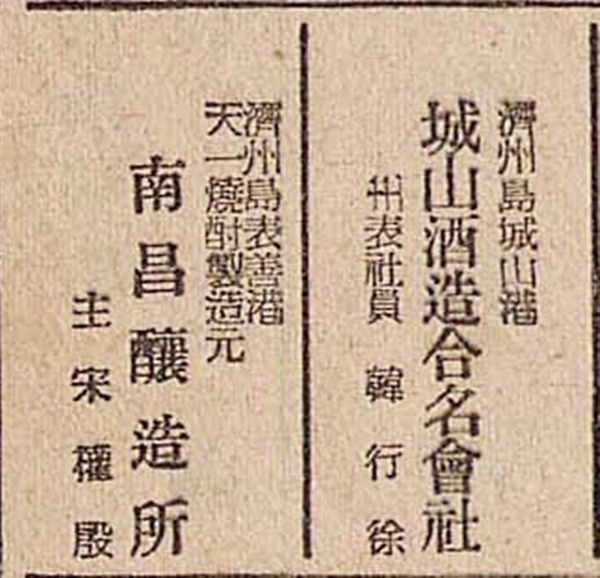 濟州島城山港
城山酒造合名會社
代表社員 韓行徐
濟州島表善港
天一燒酎製造元
南昌釀造所
主 宋權殷